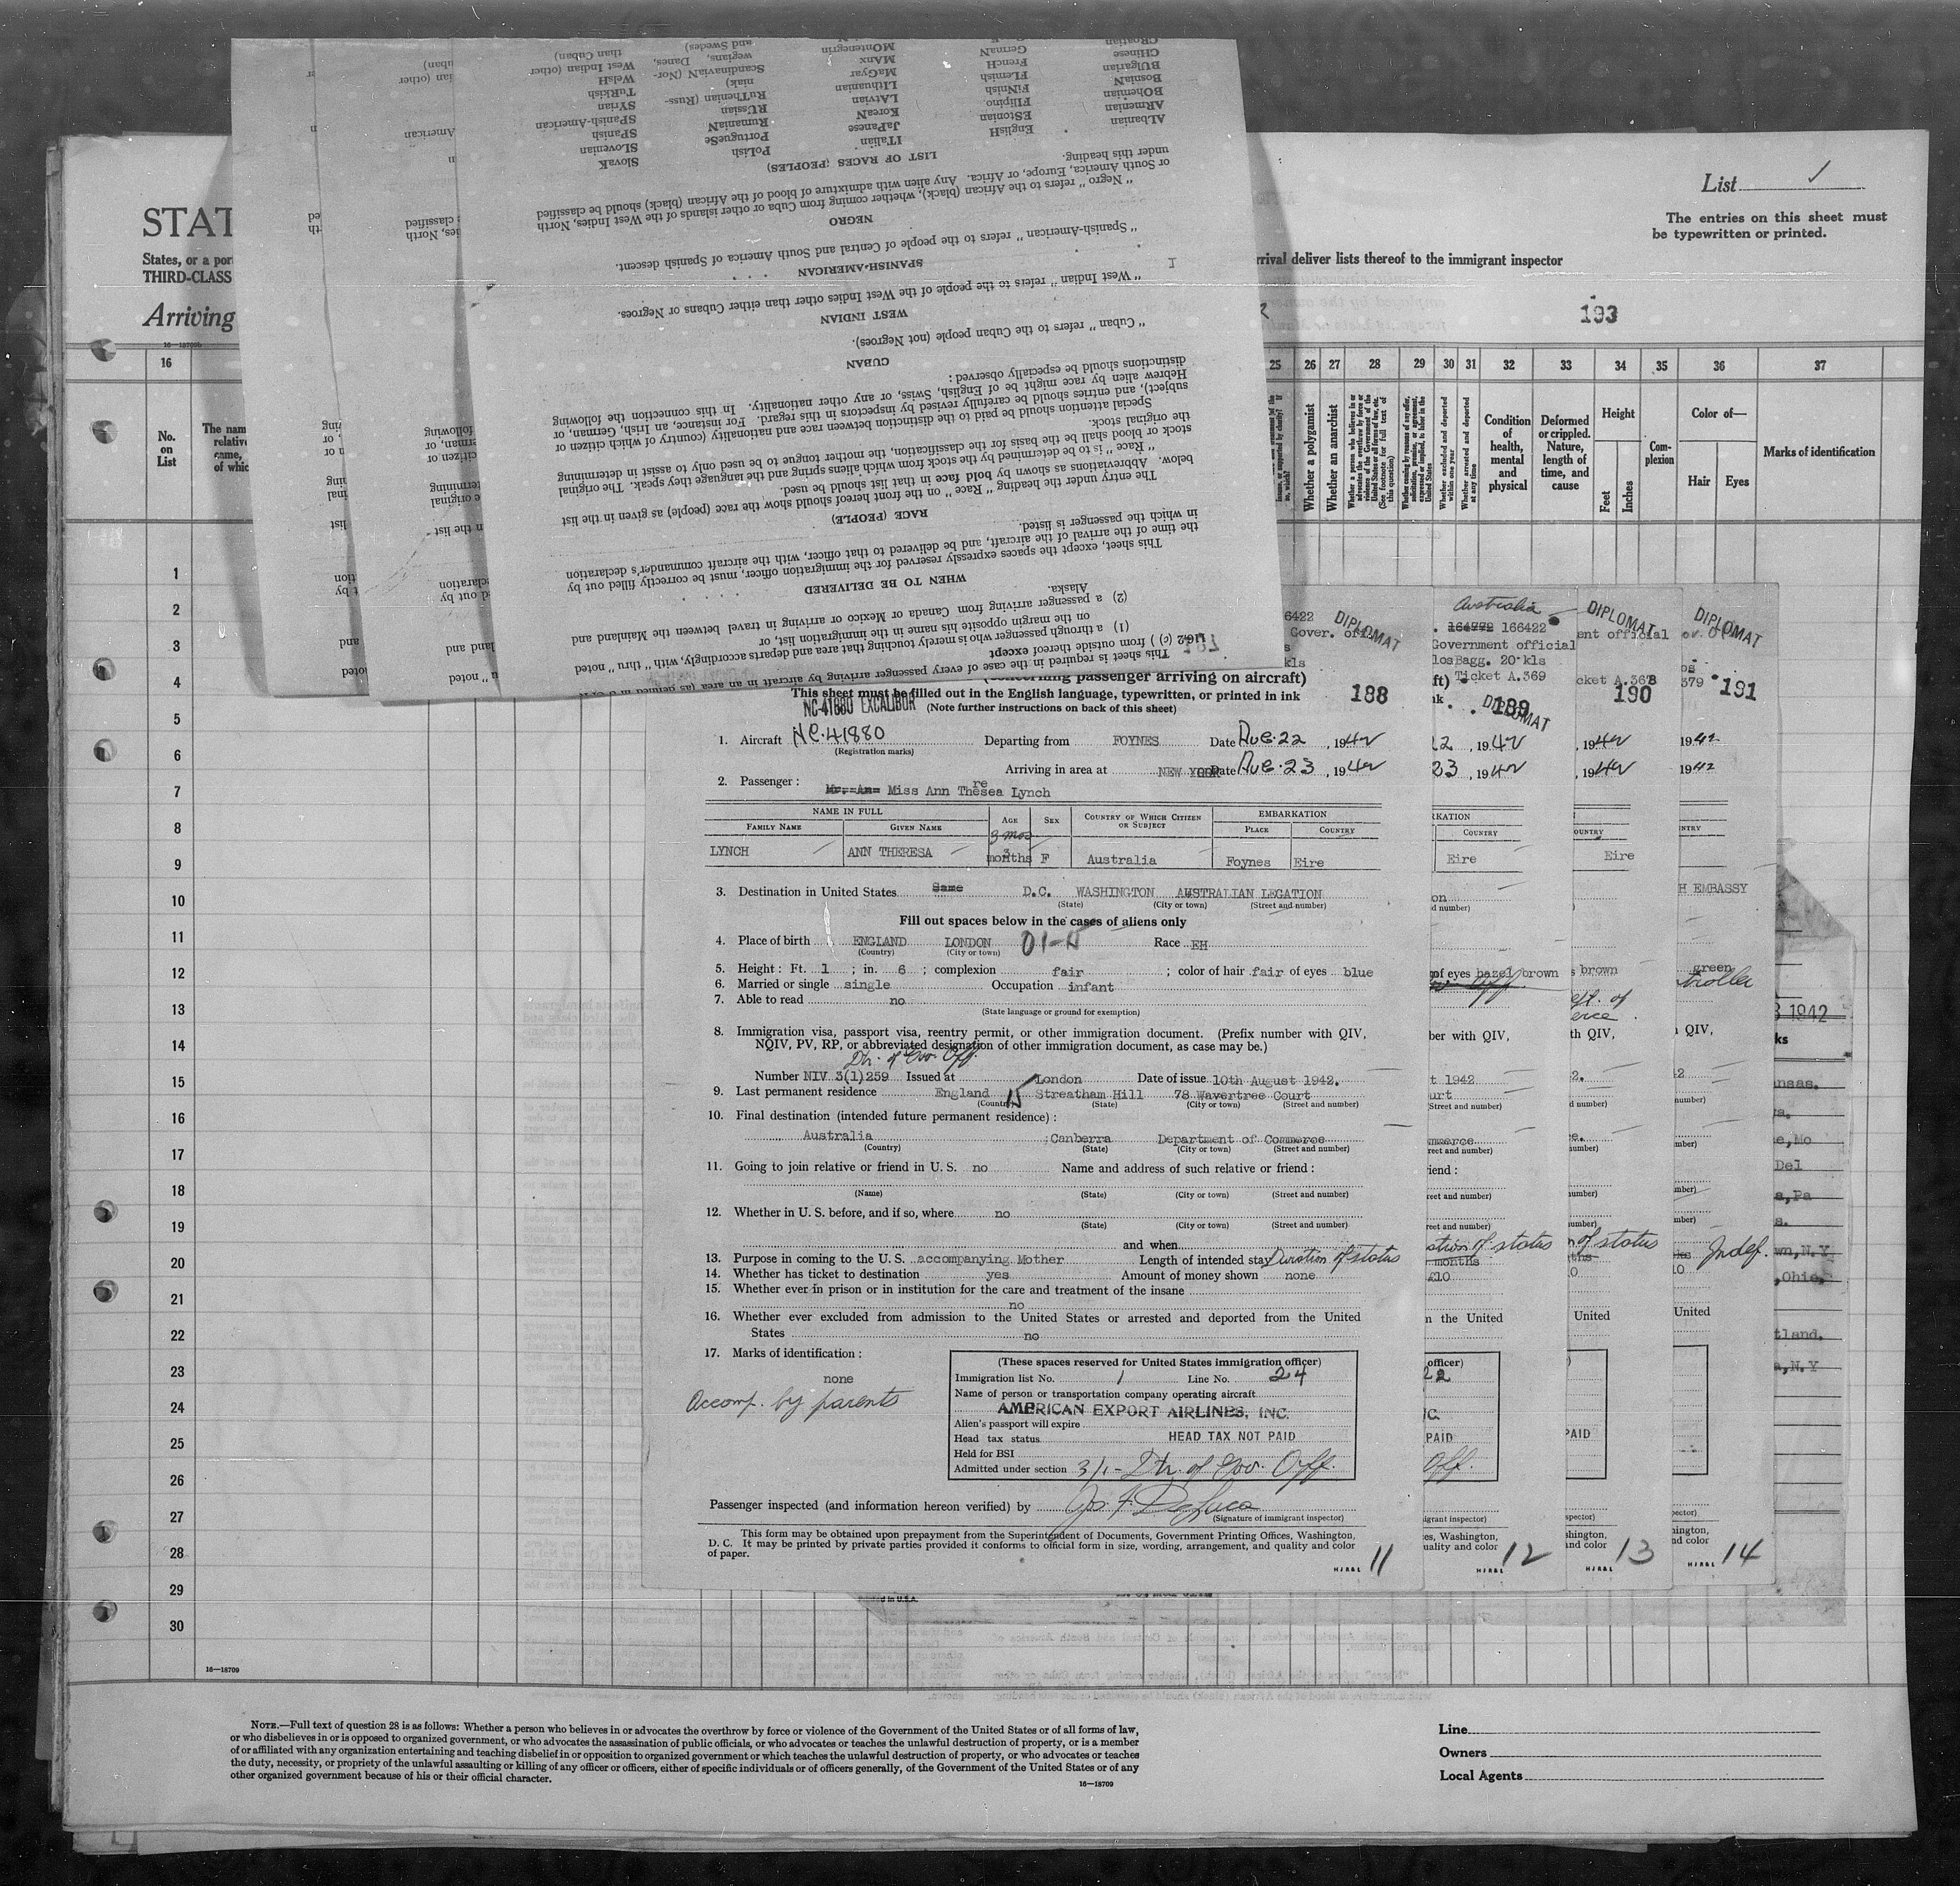 List 1
The entries on this sheet must
be typewritten or printed.
STAT
States, or a por
THIRD-CLASS
rrival deliver lists thereof to the immigrant inspector
Arriving
193
16—18708b
16 25 26 27 28 29 30 31 32 33 34 35 36 37
No.
on
List
The nam
relativ
came,
of whic
Whether a polygamist
Whether an anarchist
Whether excluded and deported within one year
Whether arrested and deported at any time
Condition
of
health,
mental
and
physical
Deformed
or crippled.
Nature,
length of
time, and
cause
Height
Feet
Inches
Com-
plexion
Color of—
Hair
Eyes
Marks of identification
1
2
3
4
5
6
7
8
9
10
11
12
13
14
15
16
17
18
19
20
21
22
23
24
25
26
27
28
29
30
16—18709
187
This sheet is required in the case of every passenger arriving by aircraft in an area (as defined in
162 (c) ) from outside thereof except
(1) a through passenger who is merely touching that area and departs accordingly, with "thru" noted
on the margin opposite his name in the immigration list, or
(2) a passenger arriving from Canada or Mexico or arriving in travel between the Mainland and
Alaska.
WHEN TO BE DELIVERED
This sheet, except the spaces expressly reserved for the immigration officer, must be correctly filled out by
the time of the arrival of the aircraft, and be delivered to that officer, with the aircraft commander's declaration
in which the passenger is listed.
RACE (PEOPLE)
The entry under the heading "Race" on the front hereof should show the race (people) as given in the list
below. Abbreviations as shown by bold face in that list should be used.
"Race" is to be determined by the stock from which aliens spring and the language they speak. The original
stock or blood shall be the basis for the classification, the mother tongue to be used only to assist in determining
the original stock.
Special attention should be paid to the distinction between race and nationality (country of which citizen or
subject), and entries should be carefully revised by inspectors in this regard. For instance, an Irish, German, or
Hebrew alien by race might be of English, Swiss, or any other nationality. In this connection the following
distinctions should be especially observed:
CUBAN
"Cuban" refers to the Cuban people (not Negroes).
WEST INDIAN
"West Indian" refers to the people of the West Indies other than either Cubans or Negroes.
SPANISH-AMERICAN
"Spanish-American" refers to the people of Central and South America of Spanish descent.
NEGRO
"Negro" refers to the African (black), whether coming from Cuba or other islands of the West Indies, North
or South America, Europe, or Africa. Any alien with admixture of blood of the African (black) should be classified
under this heading.
LIST OF RACES (PEOPLES)
ALbanian EnglisH ITaliaN PoLish SlovaK
ARmenian EStonian JaPanese PortugueSe SLovenian
BOhemian FIlipino KoreaN RumaniaN SPaniSh
BosniaN FiNnish LAtvian RUssian SPanish-American
BUlgarian FLemish LIthuanian RuThenian (Russ- SYrian
CHinese FrencH MaGyar niak) TuRkish
CRoatian GermaN MAnx ScandinaviaN (Nor- WelsH
MOntenegrin wegians, Danes, West Indian (other
and Swedes) than Cuban)
(concerning passenger arriving on aircraft)
This sheet must be filled out in the English language, typewritten, or printed in ink
188
NC-41880 EXCALIBUR (Note further instructions on back of this sheet)
1. Aircraft NC·41880 Departing from FOYNES Date Aug·22, 1942
(Registration marks)
Arriving in area at NEW YORK Date Aug·23, 1942
2. Passenger: Miss Ann Theresa Lynch
NAME IN FULL AGE SEX COUNTRY OF WHICH CITIZEN OR SUBJECT EMBARKATION
FAMILY NAME GIVEN NAME PLACE COUNTRY
3 mos
LYNCH ANN THERESA 3 months F Australia Foynes Eire
3. Destination in United States Same D.C. WASHINGTON AUSTRALIAN LEGATION
(State) (City or town) (Street and number)
Fill out spaces below in the cases of aliens only
4. Place of birth ENGLAND LONDON Race EH
(Country) (City or town)
5. Height: Ft. 1; in. 6; complexion fair; color of hair fair of eyes blue
6. Married or single single Occupation infant
7. Able to read no
(State language or ground for exemption)
8. Immigration visa, passport visa, reentry permit, or other immigration document. (Prefix number with QIV,
NQIV, PV, RP, or abbreviated designation of other immigration document, as case may be.)
Dtr. of Gov. Off.
Number NIV 3(1)259 Issued at London Date of issue 10th August 1942.
9. Last permanent residence England Streatham Hill 78 Wavertree Court
(Country) (State) (City or town) (Street and number)
10. Final destination (intended future permanent residence):
Australia Canberra Department of Commerce
(Country) (State) (City or town) (Street and number)
11. Going to join relative or friend in U. S. no Name and address of such relative or friend:
(Name) (State) (City or town) (Street and number)
12. Whether in U. S. before, and if so, where no
(State) (City or town) (Street and number)
and when
13. Purpose in coming to the U. S. accompanying Mother Length of intended stay Duration of status
14. Whether has ticket to destination yes Amount of money shown none
15. Whether ever in prison or in institution for the care and treatment of the insane
no
16. Whether ever excluded from admission to the United States or arrested and deported from the United
States no
17. Marks of identification:
none
Accomp. by parents
(These spaces reserved for United States immigration officer)
Immigration list No. 1 Line No. 24
Name of person or transportation company operating aircraft
AMERICAN EXPORT AIRLINES, INC.
Alien's passport will expire
Head tax status HEAD TAX NOT PAID
Held for BSI
Admitted under section 3/1- Dtr. of Gov. Off.
Passenger inspected (and information hereon verified) by Jos. F. DeLuca
(Signature of immigrant inspector)
This form may be obtained upon prepayment from the Superintendent of Documents, Government Printing Offices, Washington,
D. C. It may be printed by private parties provided it conforms to official form in size, wording, arrangement, and quality and color
of paper.
H J R & L 11
6422 DIPLOMAT
Gover. offi
kls
Australia
164772 166422
Government official
Bagg. 20 kls
Ticket A.369
189
DIPLOMAT
22, 1942
23, 1942
COUNTRY
Eire
of eyes hazel brown
ber with QIV,
t 1942
urt
Street and number)
mmerce
iend:
ation of status
months
£10
n the United
officer)
22
PAID
Off.
H J R & L 12
DIPLOMAT
ent official
cket A.368
190
, 1942
, 1942
OUNTRY
Eire
s brown
th QIV,
n of status
United
PAID
H J R & L 13
DIPLOMAT
379
191
1942
1942
H EMBASSY
green
QIV,
Indef.
United
H J R & L 14
1942
ks
ansas.
e, Mo
Del
a, Pa
wn, N.Y.
, Ohio.
tland.
a, N.Y
NOTE.—Full text of question 28 is as follows: Whether a person who believes in or advocates the overthrow by force or violence of the Government of the United States or of all forms of law,
or who disbelieves in or is opposed to organized government, or who advocates the assassination of public officials, or who advocates or teaches the unlawful destruction of property, or is a member
of or affiliated with any organization entertaining and teaching disbelief in or opposition to organized government or which teaches the unlawful destruction of property, or who advocates or teaches
the duty, necessity, or propriety of the unlawful assaulting or killing of any officer or officers, either of specific individuals or of officers generally, of the Government of the United States or of any
other organized government because of his or their official character.
16—18709
Line
Owners
Local Agents